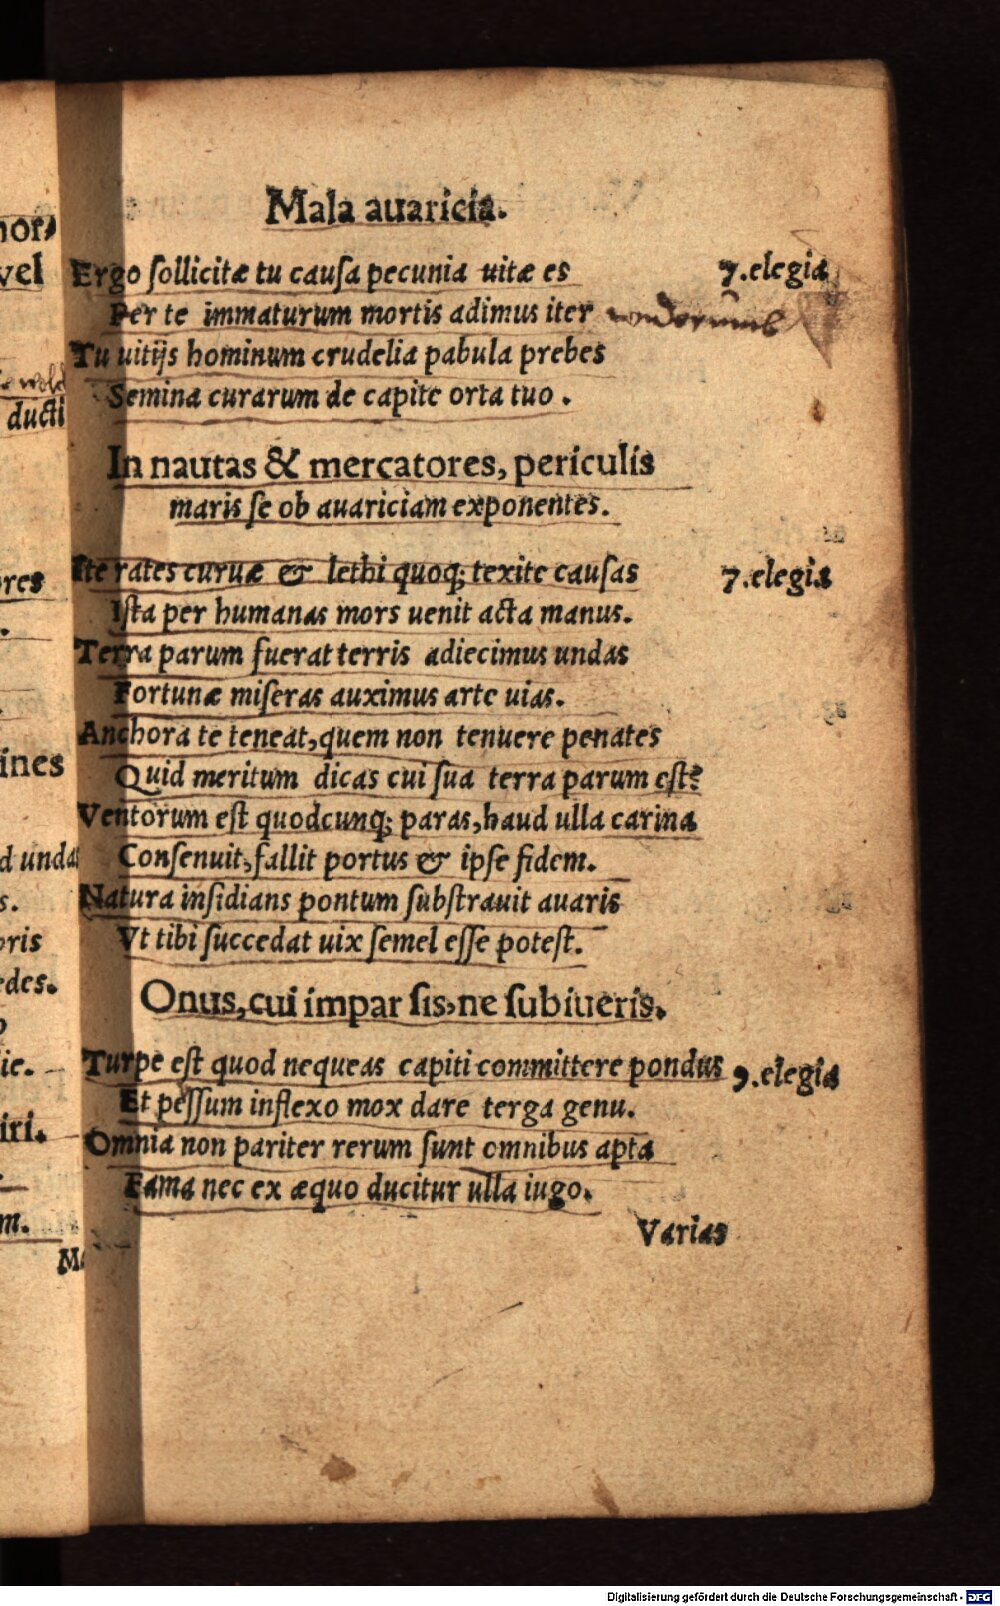 Mala auaricia.
Ergo sollicitæ tu causa pecunia uitæ es 7.elegia
Per te immaturum mortis adimus iter
Tu uitijs hominum crudelia pabula prebes
Semina curarum de capite orta tuo.
In nautas & mercatores, periculis
maris se ob auariciam exponentes.
Ite rates curuæ & lethi quoq; texite causas 7.elegia
Ista per humanas mors uenit acta manus.
Terra parum fuerat terris adiecimus undas
Fortunæ miseras auximus arte uias.
Anchora te teneat, quem non tenuere penates
Quid meritum dicas cui sua terra parum est?
Ventorum est quodcunq; paras, haud ulla carina
Consenuit, fallit portus & ipse fidem.
Natura insidians pontum substrauit auaris
Vt tibi succedat uix semel esse potest.
Onus, cui impar sis, ne subiueris.
Turpe est quod nequeas capiti committere pondus 9.elegia
Et pessum inflexo mox dare terga genu.
Omnia non pariter rerum sunt omnibus apta
Fama nec ex æquo ducitur ulla iugo.
Varias
vel
ducti
ines
s.
edes.
iri.
m.
Digitalisierung gefördert durch die Deutsche Forschungsgemeinschaft - DFG